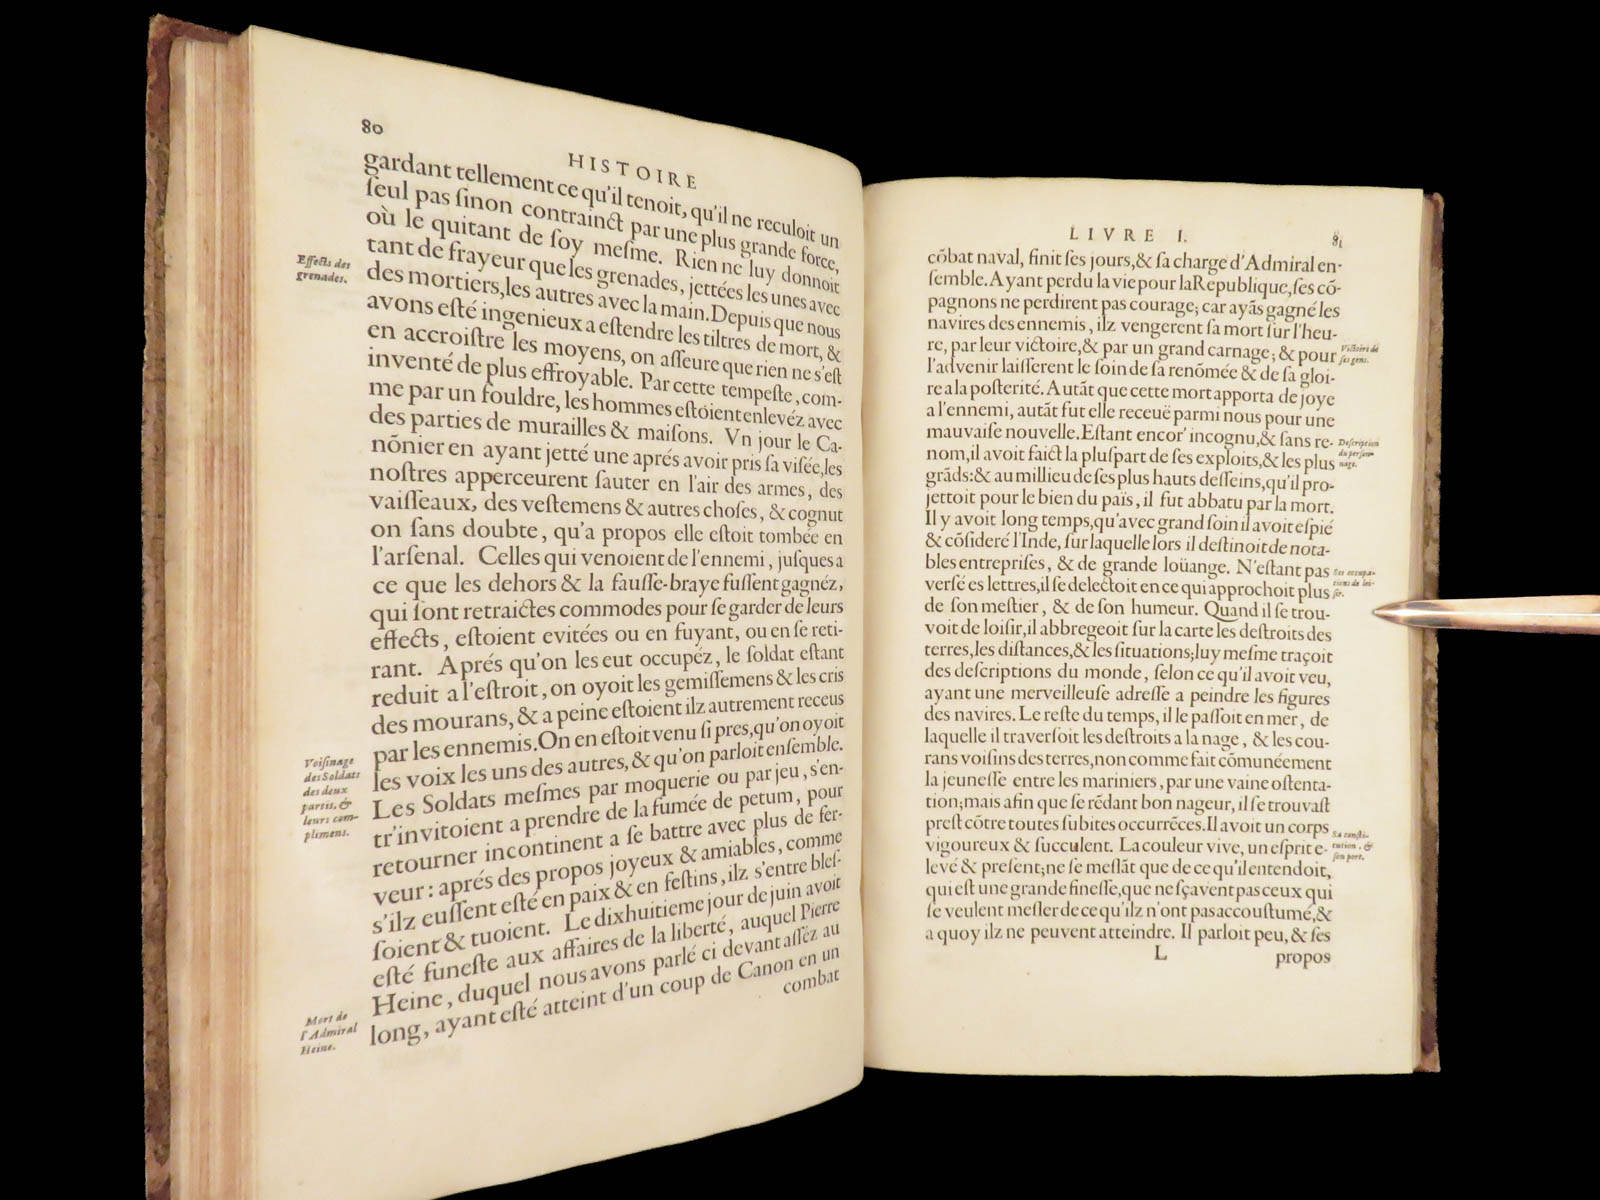 80
HISTOIRE
gardant tellement ce qu'il tenoit, qu'il ne reculoit un
ſeul pas ſinon contrainct par une plus grande force,
où le quitant de ſoy meſme. Rien ne luy donnoit
tant de frayeur que les grenades, jettées les unes avec
Effects des
grenades.
des mortiers, les autres avec la main. Depuis que nous
avons eſté ingenieux a eſtendre les tiltres de mort, &
en accroiſtre les moyens, on aſſeure que rien ne s'eſt
inventé de plus effroyable. Par cette tempeſte, com-
me par un fouldre, les hommes eſtoient enlevéz avec
des parties de murailles & maiſons. Vn jour le Ca-
nõnier en ayant jetté une aprés avoir pris ſa viſée, les
noſtres apperceurent ſauter en l'air des armes, des
vaiſſeaux, des veſtemens & autres choſes, & cognut
on ſans doubte, qu'a propos elle eſtoit tombée en
l'arſenal. Celles qui venoient de l'ennemi, juſques a
ce que les dehors & la fauſſe-braye fuſſent gagnéz,
qui ſont retraictes commodes pour ſe garder de leurs
effects, eſtoient evitées ou en fuyant, ou en ſe reti-
rant. Aprés qu'on les eut occupéz, le ſoldat eſtant
reduit a l'eſtroit, on oyoit les gemiſſemens & les cris
des mourans, & a peine eſtoient ilz autrement receus
par les ennemis. On en eſtoit venu ſi pres, qu'on oyoit
Voiſinage
des Soldats
des deux
partis, &
leurs com-
plimens.
les voix les uns des autres, & qu'on parloit enſemble.
Les Soldats meſmes par moquerie ou par jeu, s'en-
tr'invitoient a prendre de la fumée de petum, pour
retourner incontinent a ſe battre avec plus de fer-
veur: aprés des propos joyeux & amiables, comme
s'ilz euſſent eſté en paix & en feſtins, ilz s'entre bleſ-
ſoient & tuoient. Le dixhuitieme jour de juin avoit
eſté funeſte aux affaires de la liberté, auquel Pierre
Mort de
l'Admiral
Heine.
Heine, duquel nous avons parlé ci devant aſſéz au
long, ayant eſté atteint d'un coup de Canon en un
combat
LIVRE I.
81
cõbat naval, finit ſes jours, & ſa charge d'Admiral en-
ſemble. Ayant perdu la vie pour la Republique, ſes cõ-
pagnons ne perdirent pas courage; car ayãs gagné les
navires des ennemis, ilz vengerent ſa mort ſur l'heu-
re, par leur victoire, & par un grand carnage; & pour
Victoire de
ſes gens.
l'advenir laiſſerent le ſoin de ſa renõmée & de ſa gloi-
re a la poſterité. Autãt que cette mort apporta de joye
a l'ennemi, autãt fut elle receuë parmi nous pour une
mauvaiſe nouvelle. Eſtant encor' incognu, & ſans re-
Deſcription
du perſon-
nage.
nom, il avoit faict la pluſpart de ſes exploits, & les plus
grãds: & au millieu de ſes plus hauts deſſeins, qu'il pro-
jettoit pour le bien du païs, il fut abbatu par la mort.
Il y avoit long temps, qu'avec grand ſoin il avoit eſpié
& cõſideré l'Inde, ſur laquelle lors il deſtinoit de nota-
bles entrepriſes, & de grande loüange. N'eſtant pas
Ses occupa-
tions de loi-
ſir.
verſé es lettres, il ſe delectoit en ce qui approchoit plus
de ſon meſtier, & de ſon humeur. Quand il ſe trou-
voit de loiſir, il abbregeoit ſur la carte les deſtroits des
terres, les diſtances, & les ſituations; luy meſme traçoit
des deſcriptions du monde, ſelon ce qu'il avoit veu,
ayant une merveilleuſe adreſſe a peindre les figures
des navires. Le reſte du temps, il le paſſoit en mer, de
laquelle il traverſoit les deſtroits a la nage, & les cou-
rans voiſins des terres, non comme fait cõmunéement
la jeuneſſe entre les mariniers, par une vaine oſtenta-
tion; mais afin que ſe rẽdant bon nageur, il ſe trouvaſt
preſt cõtre toutes ſubites occurrẽces. Il avoit un corps
Sa conſti-
tution, &
ſon port.
vigoureux & ſucculent. La couleur vive, un eſprit e-
levé & preſent; ne ſe meſlãt que de ce qu'il entendoit,
qui eſt une grande fineſſe, que ne ſçavent pas ceux qui
ſe veulent meſler de ce qu'ilz n'ont pas accouſtumé, &
a quoy ilz ne peuvent atteindre. Il parloit peu, & ſes
L
propos